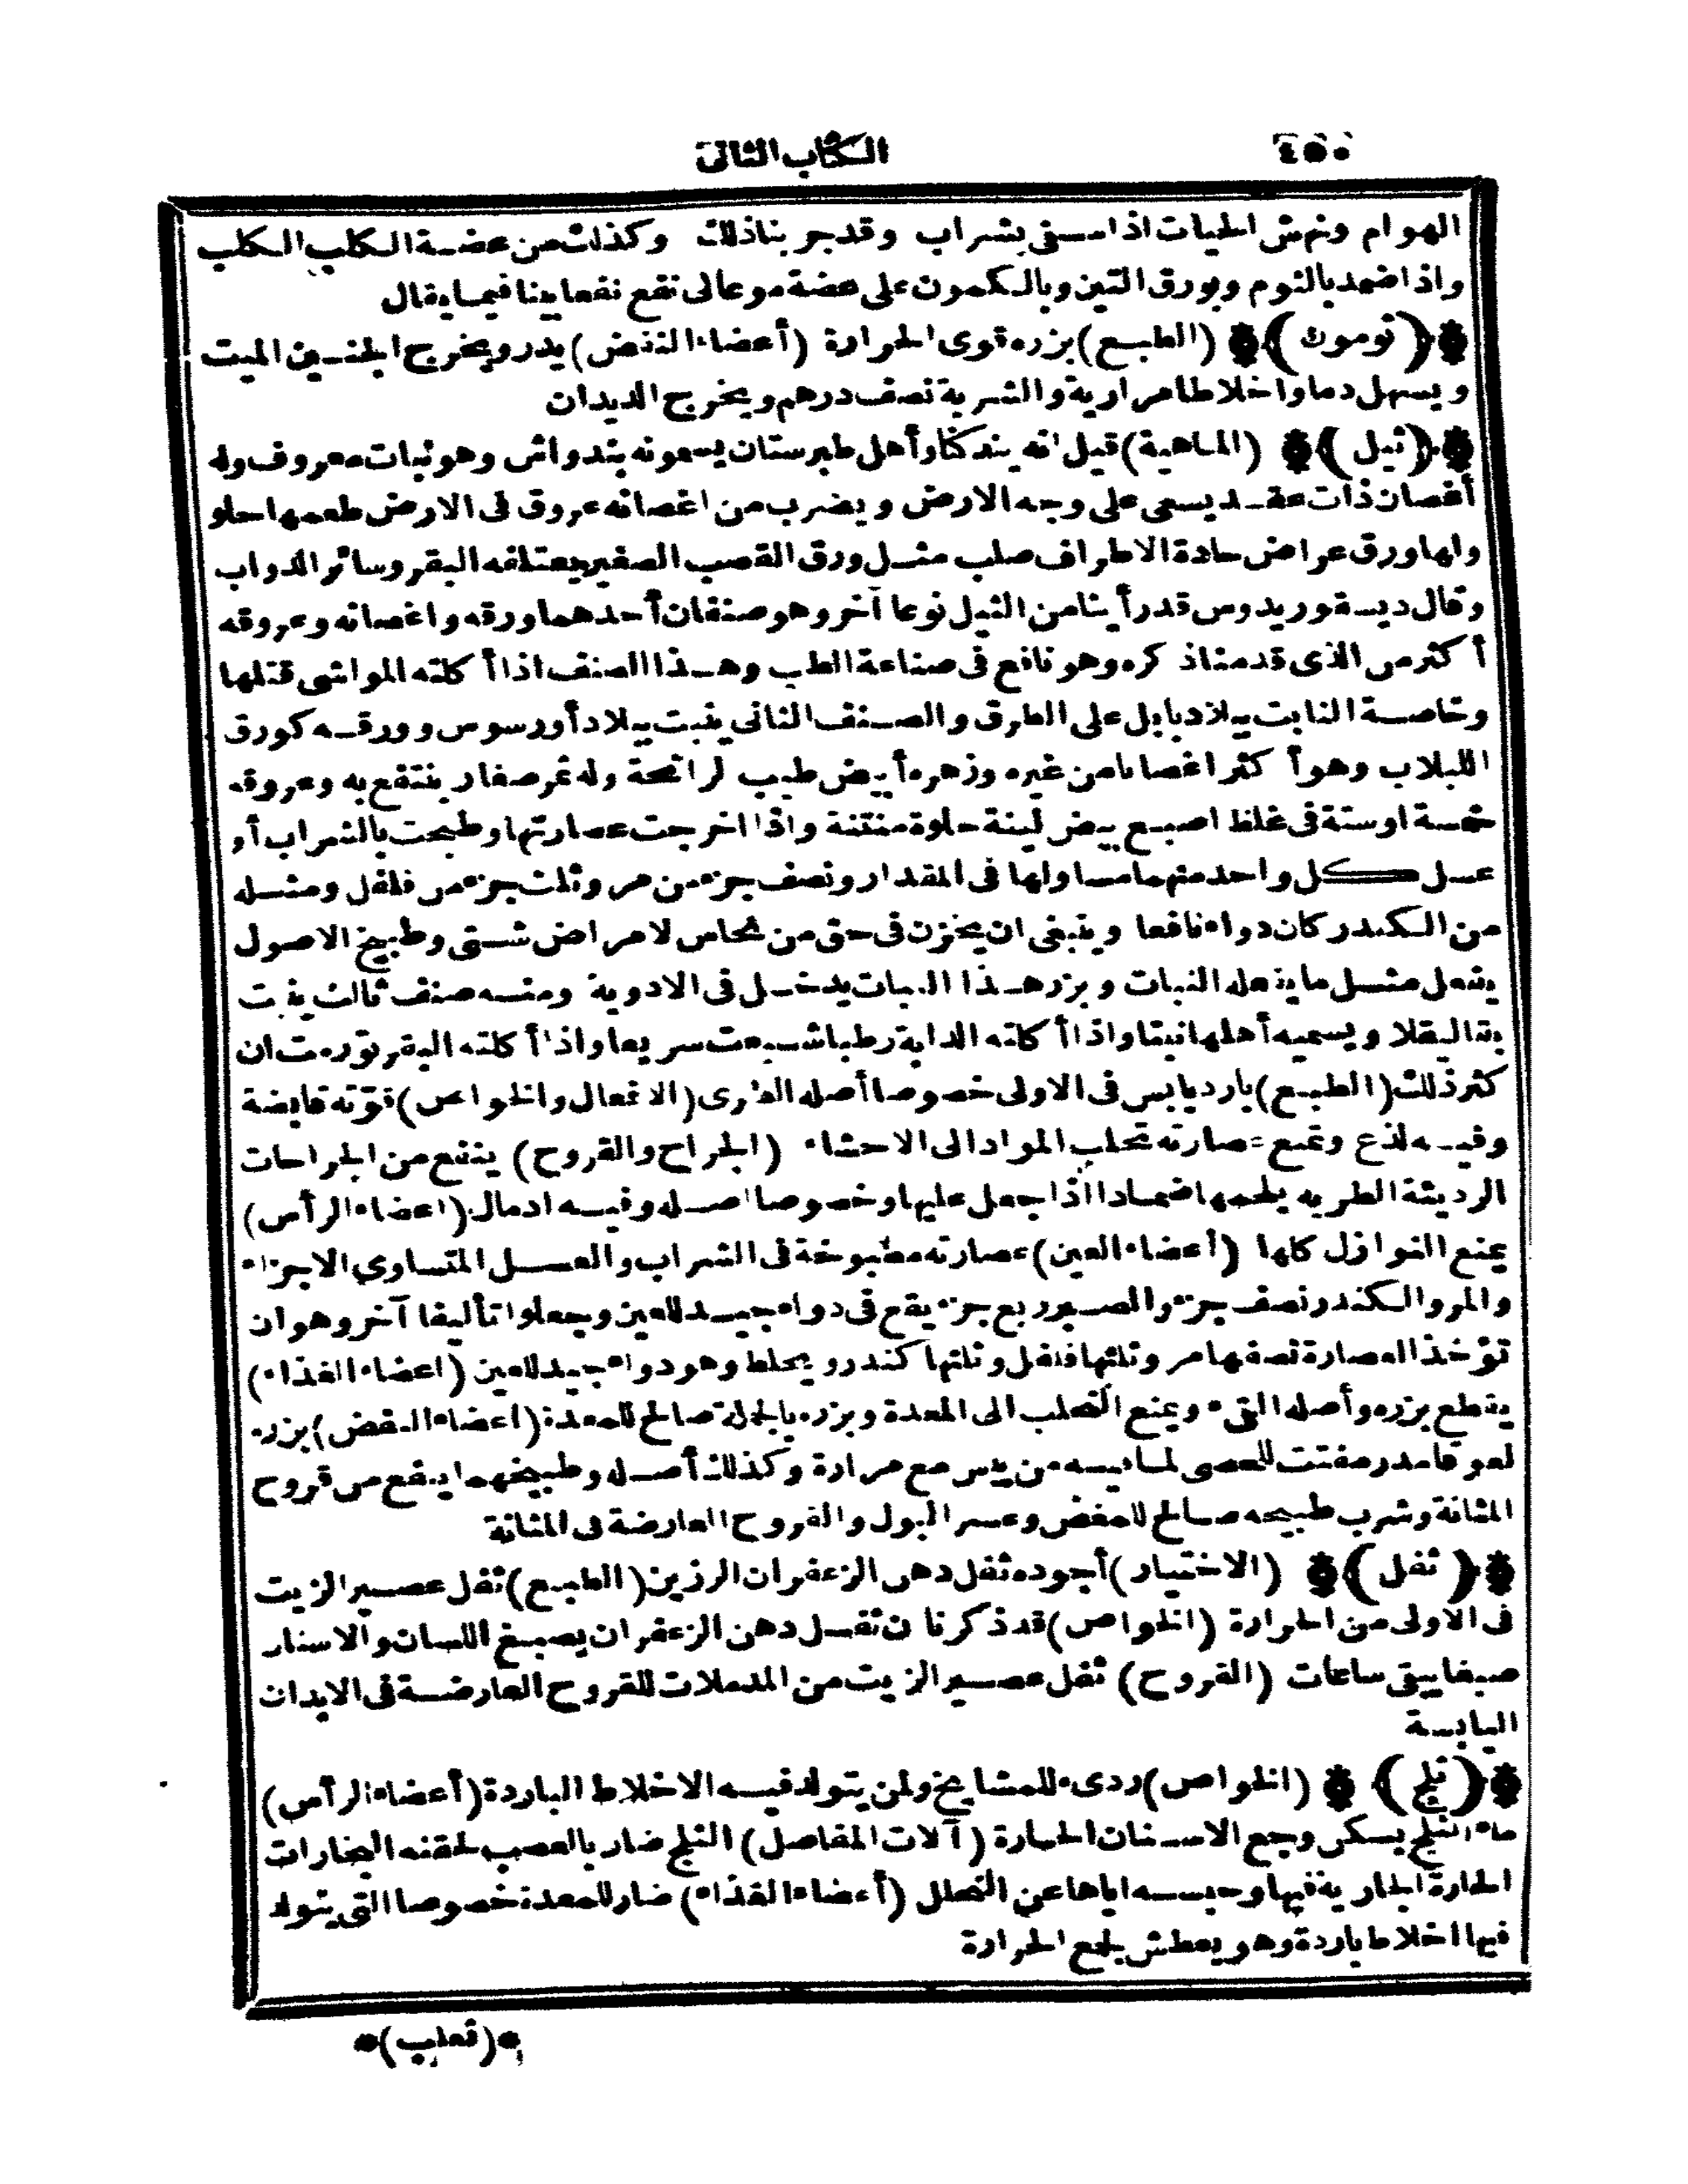 ٤٥٠ الكتاب الثانى
الهوام ونهش الحيات اذا سقى بشراب وقد جربنا ذلك وكذلك من عضة الكلب الكلب
واذا ضمد بالثوم وبورق التين وبالكمون على عضة موعالى نفع نفعا بينا فيما يقال
(ثومون) (الطبع) بزره قوى الحرارة (أعضاء النفض) يدر ويخرج الجنين الميت
ويسهل دما واخلاطا مرارية والشربة نصف درهم ويخرج الديدان
(ثيل) (الماهية) قيل انه بندكاو أهل طبرستان يسمونه بندواش وهو نبات معروف وله
أغصان ذات عقد يسعى على وجه الارض ويضرب من اغصانه عروق فى الارض طعمها حلو
ولها ورق عراض حادة الاطراف صلب مثل ورق القصب الصغير يعتلفه البقر وسائر الدواب
وقال ديسقوريدوس قد رأينا من الثيل نوعا آخر وهو صنفان أحدهما ورقه واغصانه وعروقه
أكثر من الذى قدمنا ذكره وهو نافع فى صناعة الطب وهذا الصنف اذا أكلته المواشى قتلها
وخاصة النابت ببلاد بابل على الطرق والصنف الثانى ينبت ببلاد أورسوس وورقه كورق
اللبلاب وهو أكثر اغصانا من غيره وزهره أبيض طيب الرائحة وله ثمر صغار ينتفع به وعروقه
خمسة او ستة فى غلظ اصبع بيض لينة حلوة منتنة واذا اخرجت عصارتها وطبخت بالشراب أو
عسل كل واحد منهما مساو لها فى المقدار ونصف جزء من مر وثلث جزء من فلفل ومثله
من الكندر كان دواء نافعا وينبغى ان يخزن فى حق من نحاس لامراض شتى وطبيخ الاصول
يفعل مثل ما يفعله النبات وبزر هذا النبات يدخل فى الادوية ومنه صنف ثالث ينبت
بقاليقلا ويسميه أهلها نيقا واذا أكلته الدابة رطبا شبعت سريعا واذا أكلته البقر تورمت ان
كثر ذلك (الطبع) بارد يابس فى الاولى خصوصا أصله الطرى (الافعال والخواص) قوته قابضة
وفيه لذع وتمنع عصارته تحلب المواد الى الاحشاء (الجراح والقروح) ينفع من الجراحات
الرديئة الطريه يلحمها ضمادا اذا جعل عليها وخصوصا اصله وفيه ادمال (اعضاء الرأس)
يمنع النوازل كلها (أعضاء العين) عصارته مطبوخة فى الشراب والعسل المتساوى الاجزاء
والمر والكندر نصف جزء والصبر ربع جزء يقع فى دواء جيد للعين وجعلوا تأليفا آخر وهو ان
تؤخذ العصارة نصفها مر وثلثها فلفل وثلثها كندر ويخلط وهو دواء جيد للعين (اعضاء الغذاء)
يقطع بزره وأصله القىء ويمنع التحلب الى المعدة وبزره بالجملة صالح للمعدة (اعضاء النفض) بزره
لعوقا مدر مفتت للحصى لما فيه من يبس مع مرارة وكذلك أصله وطبيخهما ينفع من قروح
المثانة وشرب طبيخه صالح للمغص وعسر البول والقروح العارضة فى المثانة
(ثفل) (الاختيار) أجوده ثفل دهن الزعفران الرزين (الطبع) ثفل عصير الزيت
فى الاولى من الحرارة (الخواص) قد ذكرنا ن ثفل دهن الزعفران يصبغ اللسان والاسنان
صبغا يبقى ساعات (القروح) ثفل عصير الزيت من المدملات للقروح العارضة فى الابدان
اليابسة
(ثلج) (الخواص) ردىء للمشايخ ولمن يتولد فيه الاخلاط الباردة (أعضاء الرأس)
ماء الثلج يسكن وجع الاسنان الحارة (آلات المفاصل) الثلج ضار بالعصب لحقنه البخارات
الحارة الجارية فيها وحبسه اياها عن التحلل (أعضاء الغذاء) ضار للمعدة خصوصا التى يتولد
فيها اخلاط باردة وهو يعطش لجمع الحرارة
*(ثعلب)*